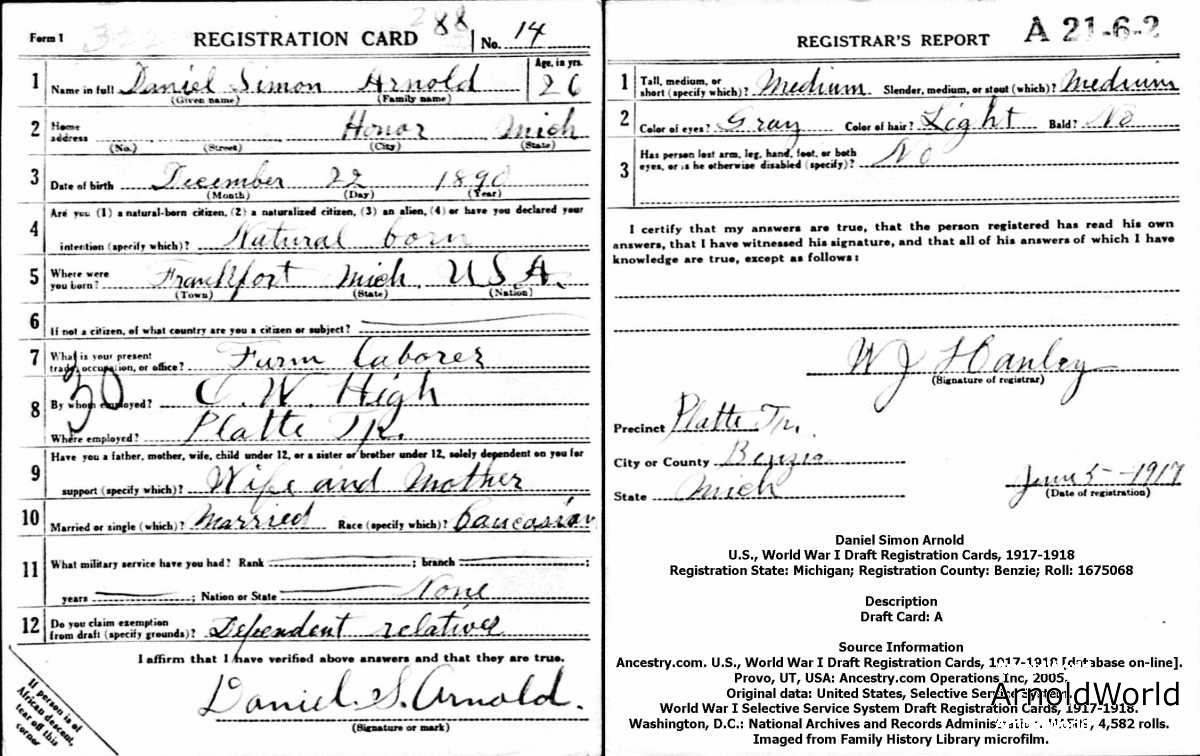 Form 1
REGISTRATION CARD
288
No. 14
1 Name in full Daniel Simon Arnold
(Given name) (Family name)
Age, in yrs.
26
2 Home address Honor Mich
(No.) (Street) (City) (State)
3 Date of birth December 22 1890
(Month) (Day) (Year)
4 Are you (1) a natural-born citizen, (2) a naturalized citizen, (3) an alien, (4) or have you declared your
intention (specify which)? Natural born
5 Where were you born? Frankfort Mich. U.S.A.
(Town) (State) (Nation)
6 If not a citizen, of what country are you a citizen or subject?
7 What is your present
trade, occupation, or office? Farm Laborer
30
8 By whom employed? C. W. High
Where employed? Platte Tp.
9 Have you a father, mother, wife, child under 12, or a sister or brother under 12, solely dependent on you for
support (specify which)? Wife and Mother
10 Married or single (which)? Married Race (specify which)? Caucasian
11 What military service have you had? Rank ; branch ;
years ; Nation or State None
12 Do you claim exemption
from draft (specify grounds)? Dependent relatives
I affirm that I have verified above answers and that they are true.
Daniel S. Arnold.
(Signature or mark)
If person is of
African descent,
tear off this
corner
REGISTRAR'S REPORT
A 21-6-2
1 Tall, medium, or
short (specify which)? Medium. Slender, medium, or stout (which)? Medium
2 Color of eyes? Gray Color of hair? Light Bald? No
3 Has person lost arm, leg, hand, foot, or both
eyes, or is he otherwise disabled (specify)? No
I certify that my answers are true, that the person registered has read his own
answers, that I have witnessed his signature, and that all of his answers of which I have
knowledge are true, except as follows:
W J Hanley
(Signature of registrar)
Precinct Platte Tp.
City or County Benzie
State Mich
June 5 - 1917
(Date of registration)
Daniel Simon Arnold
U.S., World War I Draft Registration Cards, 1917-1918
Registration State: Michigan; Registration County: Benzie; Roll: 1675068
Description
Draft Card: A
Source Information
Ancestry.com. U.S., World War I Draft Registration Cards, 1917-1918 [database on-line].
Provo, UT, USA: Ancestry.com Operations Inc, 2005.
Original data: United States, Selective Service System.
World War I Selective Service System Draft Registration Cards, 1917-1918.
Washington, D.C.: National Archives and Records Administration. M1509, 4,582 rolls.
Imaged from Family History Library microfilm.
ArnoldWorld